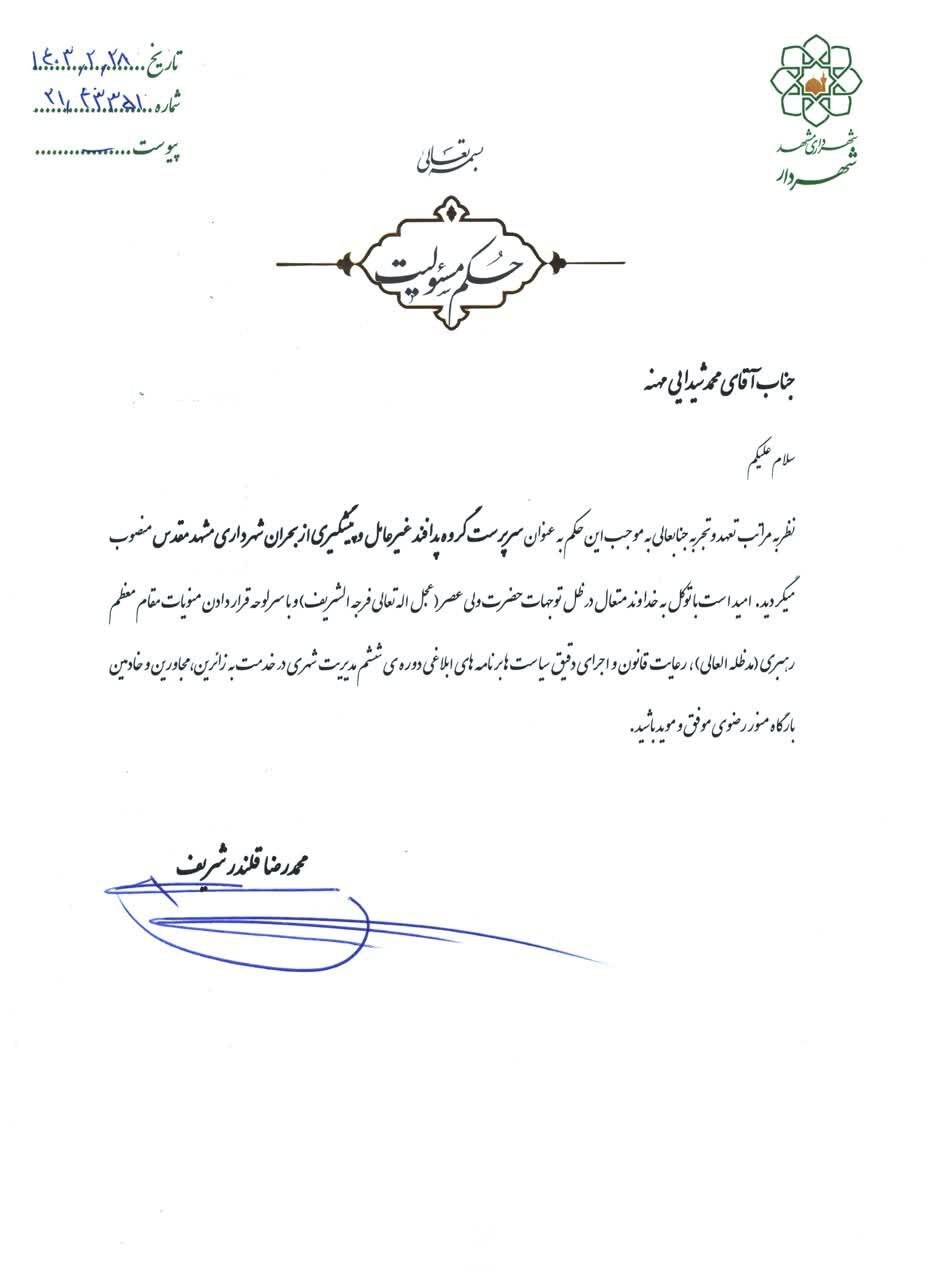 تاریخ ۱۴۰۳,۲,۲۸
شماره ۲۱/۴۳۳۵۱
پیوست
شهرداری مشهد
شهردار
بسمه تعالی
حکم مسئولیت
جناب آقای محمد شیدایی مهنه
سلام علیکم
نظر به مراتب تعهد و تجربه جنابعالی به موجب این حکم به عنوان سرپرست گروه پدافند غیرعامل و پیشگیری از بحران شهرداری مشهد مقدس منصوب
میگردید. امید است با توکل به خداوند متعال در ظل توجهات حضرت ولی عصر (عجل اله تعالی فرجه الشریف) و با سرلوحه قرار دادن منویات مقام معظم
رهبری (مدظله العالی)، رعایت قانون و اجرای دقیق سیاست ها برنامه های ابلاغی دوره ی ششم مدیریت شهری در خدمت به زائرین، مجاورین و خادمین
بارگاه منور رضوی موفق و موید باشید.
محمدرضا قلندر شریف